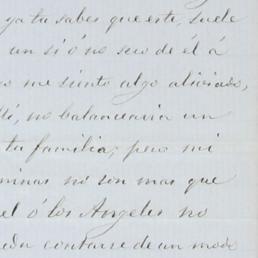 ya tu sabes que este, suele
un si ó no seco de él á
me siento algo aliviado,
no balancearia un
tu familia; pero mi
minas no son mas que
el ó los Angeles no
contarse de un modo